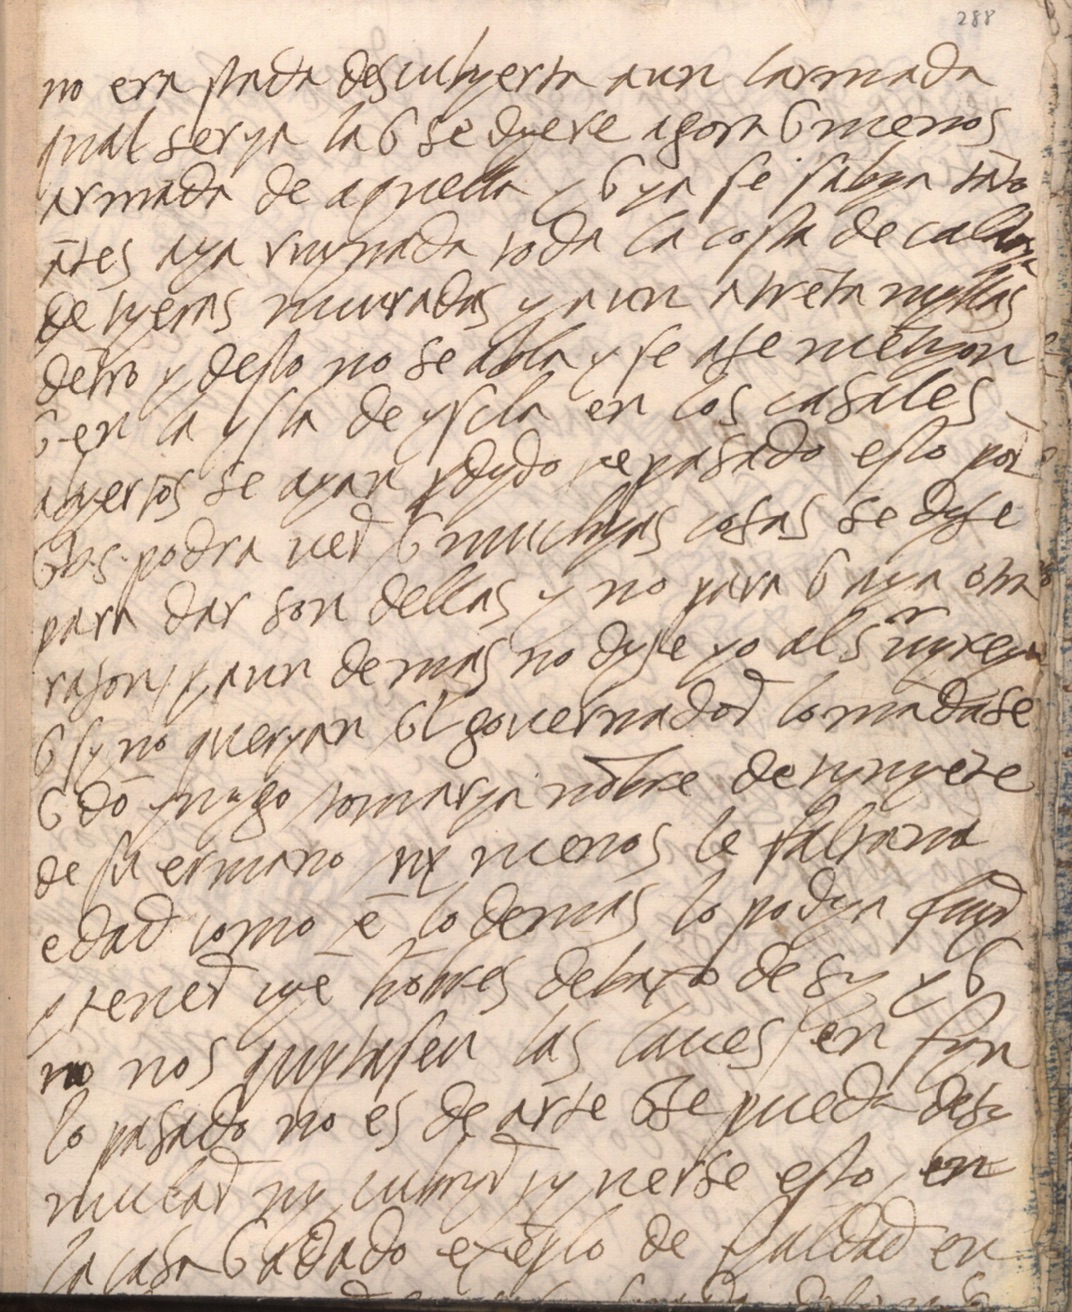 288
no era stada descubyerta aun larmada
qual serya la q se dyere agora q menos
armada de aquella y q ya se sabya tāto
ātes aya ruynada toda la costa de
de tyeras muradas y aun a trēta myllas
dētro y desto no se abla y se ase mētyon
q en la ysla de yscla en los casales
abyertos se ayan pdydo pasado esto por
q vs. podra uer q muchyas cosas se dyse
para dar son dellas y no para q aya otra
rason y aun demas no dyse yo al sōr
q sy no queryan ql governador lo mādase
q dō ynygo tomarya nōbre de tynyēte
de su ermano ny menos le faltaria
edad como ē lo demas lo podya
y tener hōbres debaxo de sy y q
no nos quytasen las laues en fyn
lo pasado no es de arte q se pueda desy
mular ny cubryr y uerse esto en
la casa q a dado exēplo de fyaldad en